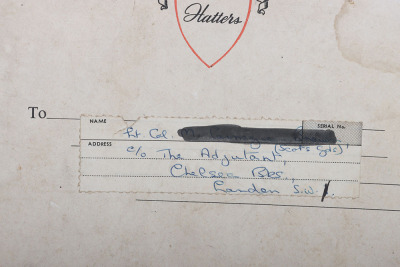 Hatters
To
NAME
SERIAL No.
Lt. Col.
ADDRESS
(Scots Gds)
c/o The Adjutant,
Chelsea Bks,
London S.W.1.